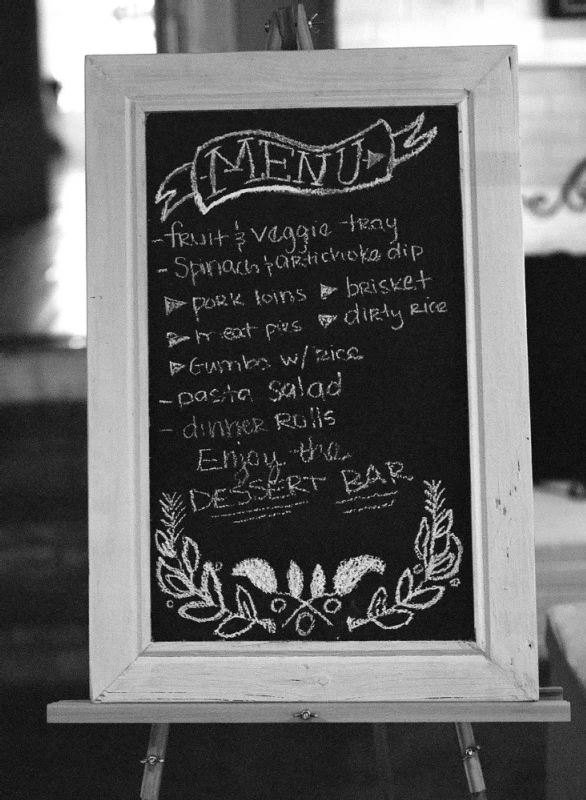 MENU
- fruit & veggie tray
- Spinach & artichoke dip
▶ pork loins ▶ brisket
▶ meat pies ▶ dirty Rice
▶ Gumbo w/ Rice
- pasta salad
- dinner Rolls
Enjoy the
DESSERT BAR